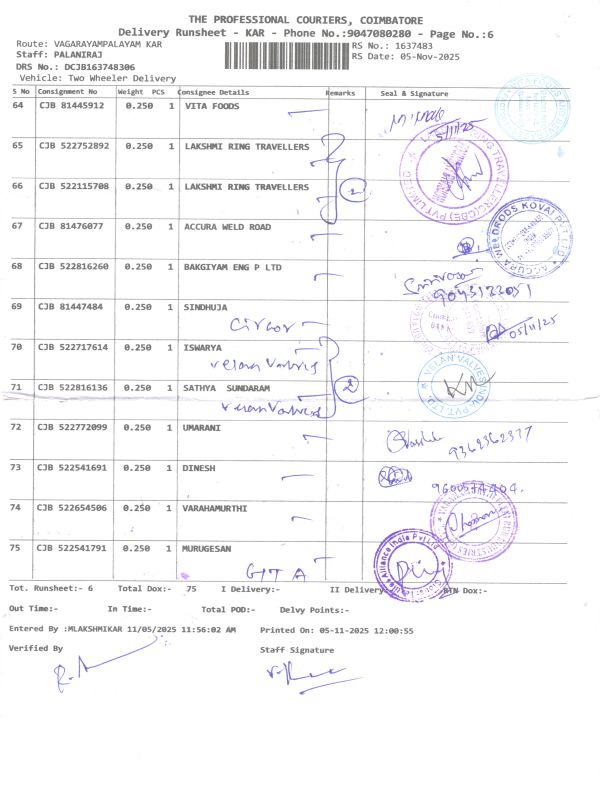 THE PROFESSIONAL COURIERS, COIMBATORE
Delivery Runsheet - KAR - Phone No.:9047080280 - Page No.:6
Route: VAGARAYAMPALAYAM KAR
RS No.: 1637483
Staff: PALANIRAJ
RS Date: 05-Nov-2025
DRS No.: DCJB163748306
Vehicle: Two Wheeler Delivery
S No Consignment No Weight PCS Consignee Details Remarks Seal & Signature
64 CJB 81445912 0.250 1 VITA FOODS
5/11/25
65 CJB 522752892 0.250 1 LAKSHMI RING TRAVELLERS
66 CJB 522115708 0.250 1 LAKSHMI RING TRAVELLERS
2
67 CJB 81476077 0.250 1 ACCURA WELD ROAD
68 CJB 522816260 0.250 1 BAKGIYAM ENG P LTD
9043122051
69 CJB 81447484 0.250 1 SINDHUJA
05/11/25
70 CJB 522717614 0.250 1 ISWARYA
Velan Valves
71 CJB 522816136 0.250 1 SATHYA SUNDARAM
2
Velan Valves
72 CJB 522772099 0.250 1 UMARANI
9362362377
73 CJB 522541691 0.250 1 DINESH
9600574404.
74 CJB 522654506 0.250 1 VARAHAMURTHI
75 CJB 522541791 0.250 1 MURUGESAN
GITA
Tot. Runsheet:- 6 Total Dox:- 75 I Delivery:- II Delivery:- RTN Dox:-
Out Time:- In Time:- Total POD:- Delvy Points:-
Entered By :MLAKSHMIKAR 11/05/2025 11:56:02 AM Printed On: 05-11-2025 12:00:55
Verified By Staff Signature